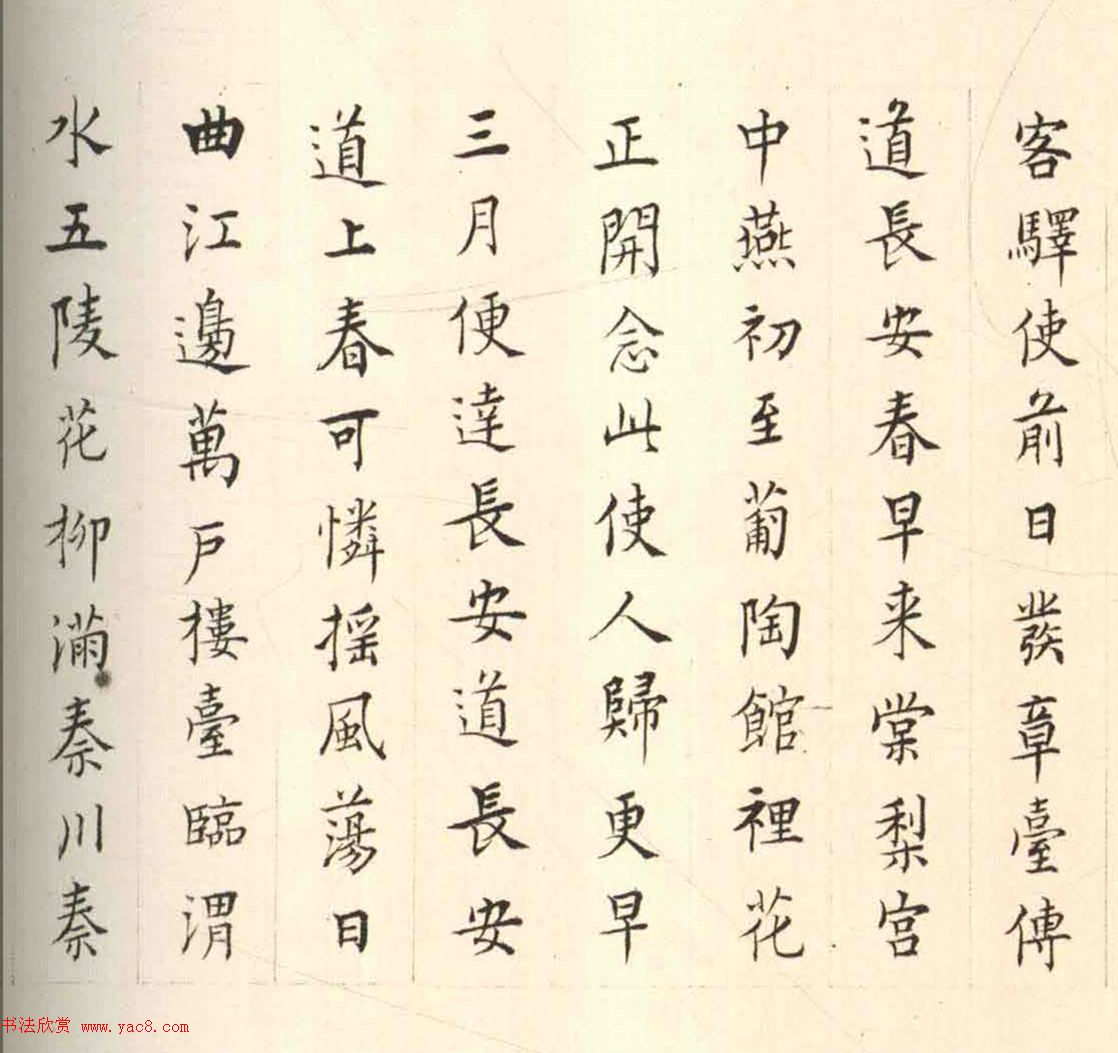 客驛使前日發章臺傳
道長安春早来棠梨宮
中燕初至葡陶館裡花
正開念此使人歸更早
三月便達長安道長安
道上春可憐摇風蕩日
曲江邊萬戶樓臺臨渭
水五陵花柳滿秦川秦
书法欣赏 www.yac8.com